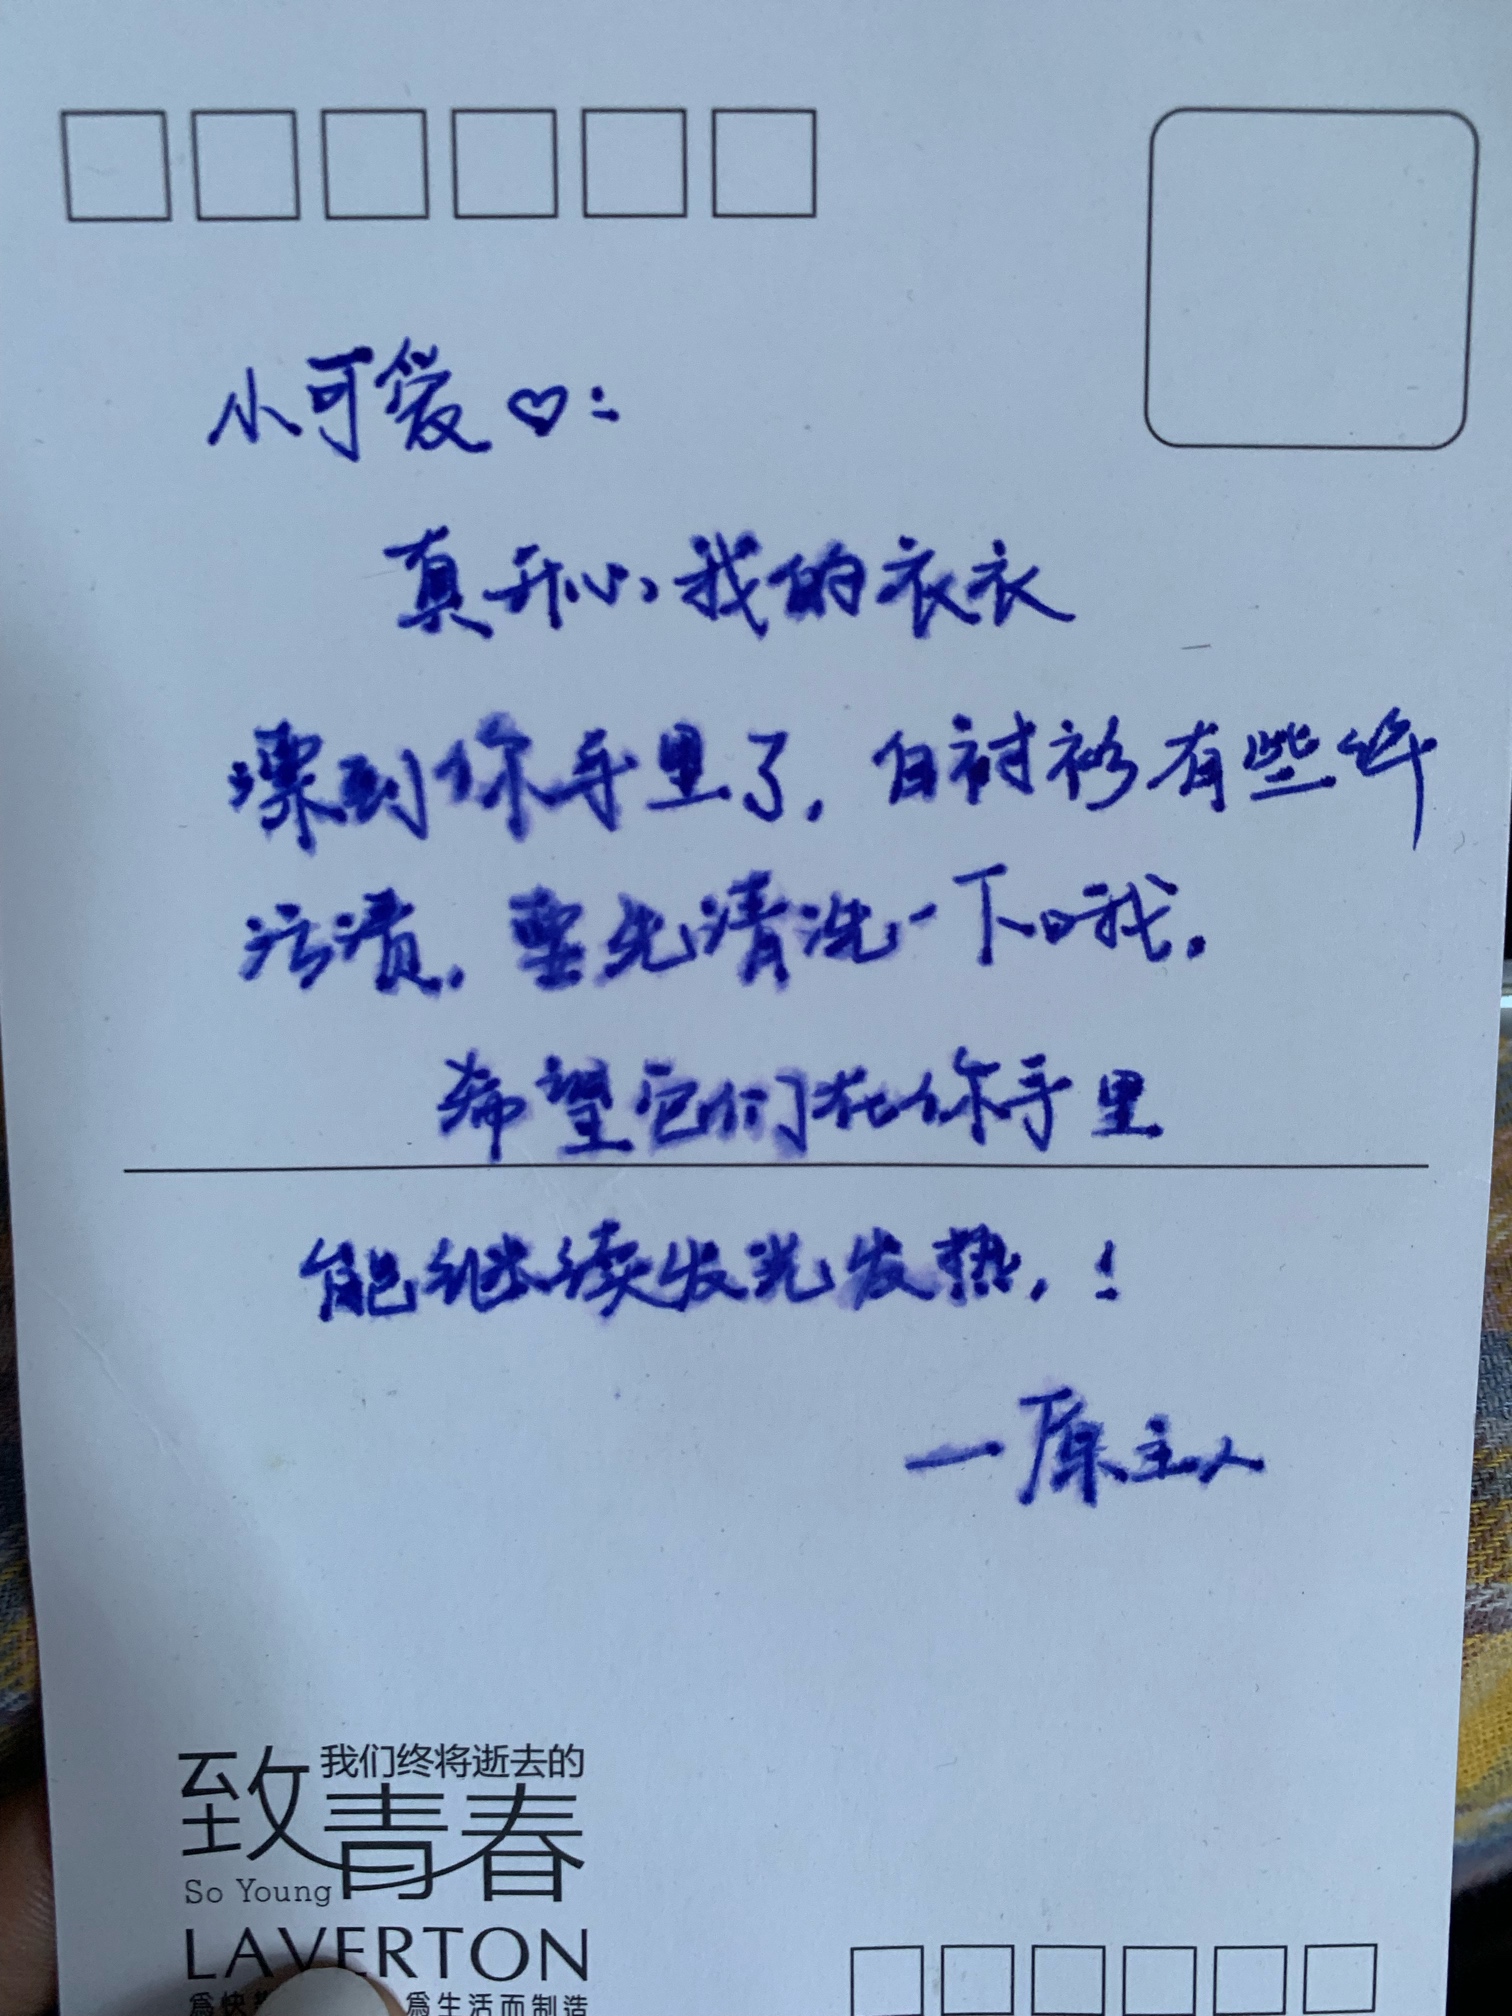 小可爱♡:
真开心,我的衣衣
漂到你手里了,白衬衫有些许
污渍,要先清洗一下哦。
希望它们在你手里
能继续发光发热,!
—原主人
致我们终将逝去的
青春
So Young
LAVERTON
為快 為生活而制造